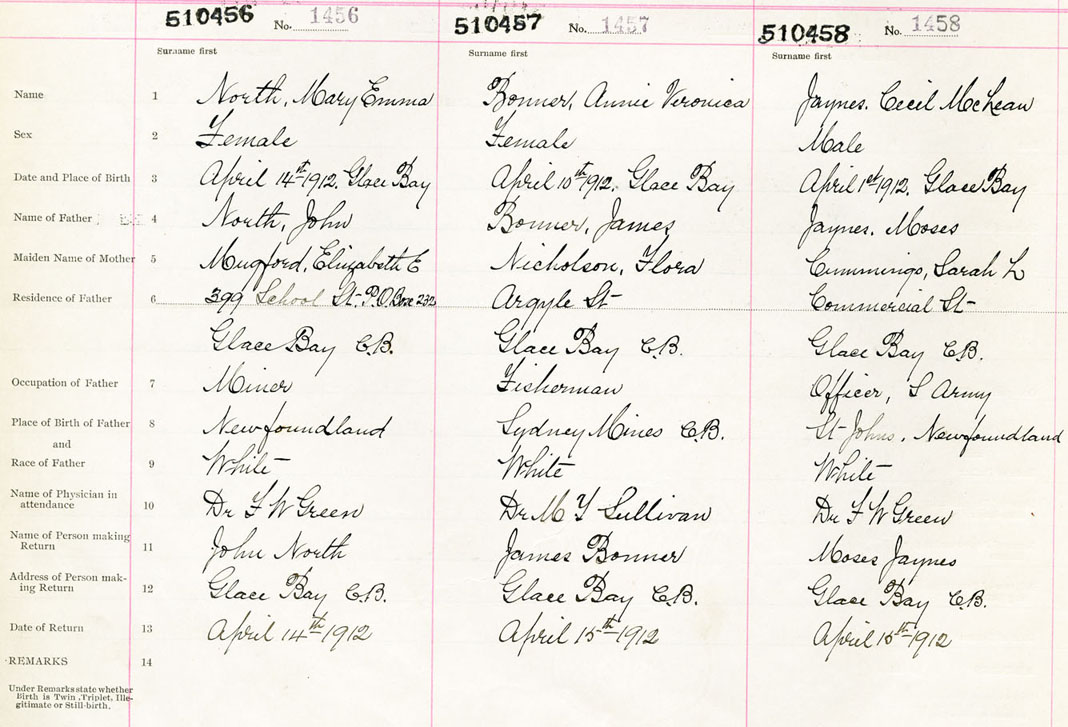 510456 No. 1456 510457 No. 1457 510458 No. 1458
Surname first Surname first Surname first
Name 1 North, Mary Emma Bonner, Annie Veronica Jaynes. Cecil McLean
Sex 2 Female Female Male
Date and Place of Birth 3 April 14th 1912. Glace Bay April 10th 1912. Glace Bay April 1st 1912. Glace Bay
Name of Father 4 North, John Bonner, James Jaynes. Moses
Maiden Name of Mother 5 Mugford, Elizabeth E Nicholson, Flora Cummings, Sarah L
Residence of Father 6 399 School St. P.O. Box 232 Argyle St Commercial St
Glace Bay C.B. Glace Bay C.B. Glace Bay C.B.
Occupation of Father 7 Miner Fisherman Officer, S Army
Place of Birth of Father 8 Newfoundland Sydney Mines C.B. St Johns, Newfoundland
and
Race of Father 9 White White White
Name of Physician in
attendance 10 Dr F W Green Dr M T Sullivan Dr F W Green
Name of Person making
Return 11 John North James Bonner Moses Jaynes
Address of Person mak-
ing Return 12 Glace Bay C.B. Glace Bay C.B. Glace Bay C.B.
Date of Return 13 April 14th 1912 April 15th 1912 April 15th 1912
REMARKS 14
Under Remarks state whether
Birth is Twin, Triplet, Ille-
gitimate or Still-birth.